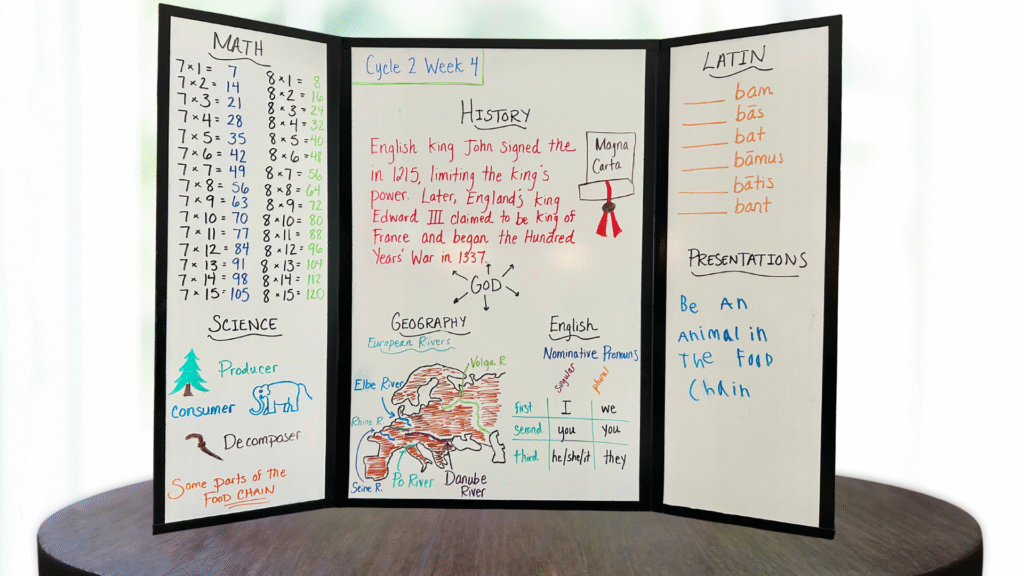 MATH
7×1= 7
7×2= 14
7×3= 21
7×4= 28
7×5= 35
7×6= 42
7×7= 49
7×8= 56
7×9= 63
7×10= 70
7×11= 77
7×12= 84
7×13= 91
7×14= 98
7×15= 105
8×1= 8
8×2= 16
8×3= 24
8×4= 32
8×5= 40
8×6= 48
8×7= 56
8×8= 64
8×9= 72
8×10= 80
8×11= 88
8×12= 96
8×13= 104
8×14= 112
8×15= 120
SCIENCE
Producer
Consumer
Decomposer
Some parts of the
FOOD CHAIN
Cycle 2 Week 4
HISTORY
English king John signed the
in 1215, limiting the king's
power. Later, England's king
Edward III claimed to be king of
France and began the Hundred
Years' War in 1337.
Magna
Carta
GOD
GEOGRAPHY
European Rivers
Volga R.
Elbe River
Rhine R.
Seine R.
Po River
Danube
River
English
Nominative Pronouns
singular plural
first I we
second you you
third he/she/it they
LATIN
____ bam
____ bās
____ bat
____ bāmus
____ bātis
____ bant
PRESENTATIONS
Be An
Animal in
The Food
Chain